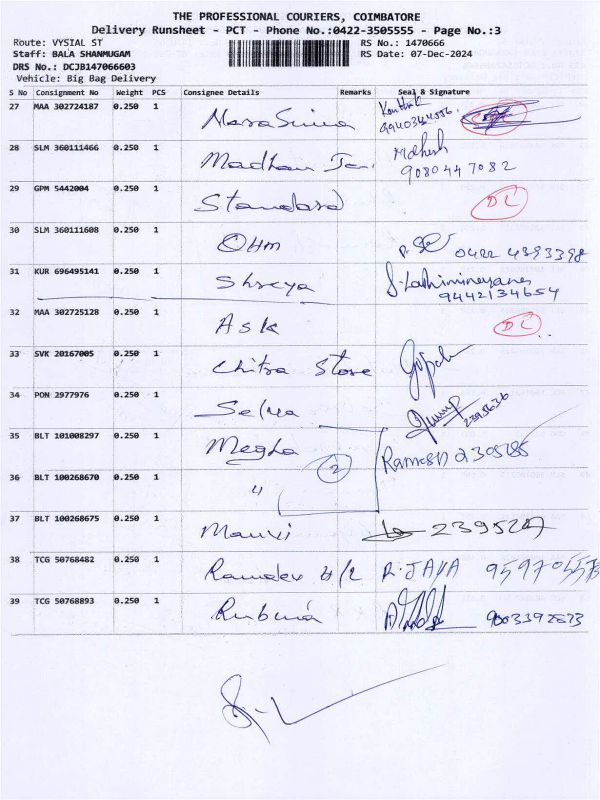 THE PROFESSIONAL COURIERS, COIMBATORE
Delivery Runsheet - PCT - Phone No.:0422-3505555 - Page No.:3
Route: VYSIAL ST RS No.: 1470666
Staff: BALA SHANMUGAM RS Date: 07-Dec-2024
DRS No.: DCJB147066603
Vehicle: Big Bag Delivery
S No Consignment No Weight PCS Consignee Details Remarks Seal & Signature
27 MAA 302724187 0.250 1
28 SLM 360111466 0.250 1 Madhan Mahesh
9080447082
29 GPM 5442004 0.250 1 Standard DL
30 SLM 360111608 0.250 1 Ohm 0422 4393398
31 KUR 696495141 0.250 1 Shreya
9442134654
32 MAA 302725128 0.250 1 Ask DL
33 SVK 20167005 0.250 1 Chitra Store Gopal
34 PON 2977976 0.250 1 Selva
35 BLT 101008297 0.250 1 Megha 2 Ramesh
36 BLT 100268670 0.250 1 "
37 BLT 100268675 0.250 1
38 TCG 50768482 0.250 1 Ramdev R. JAYA
39 TCG 50768893 0.250 1 Rubina